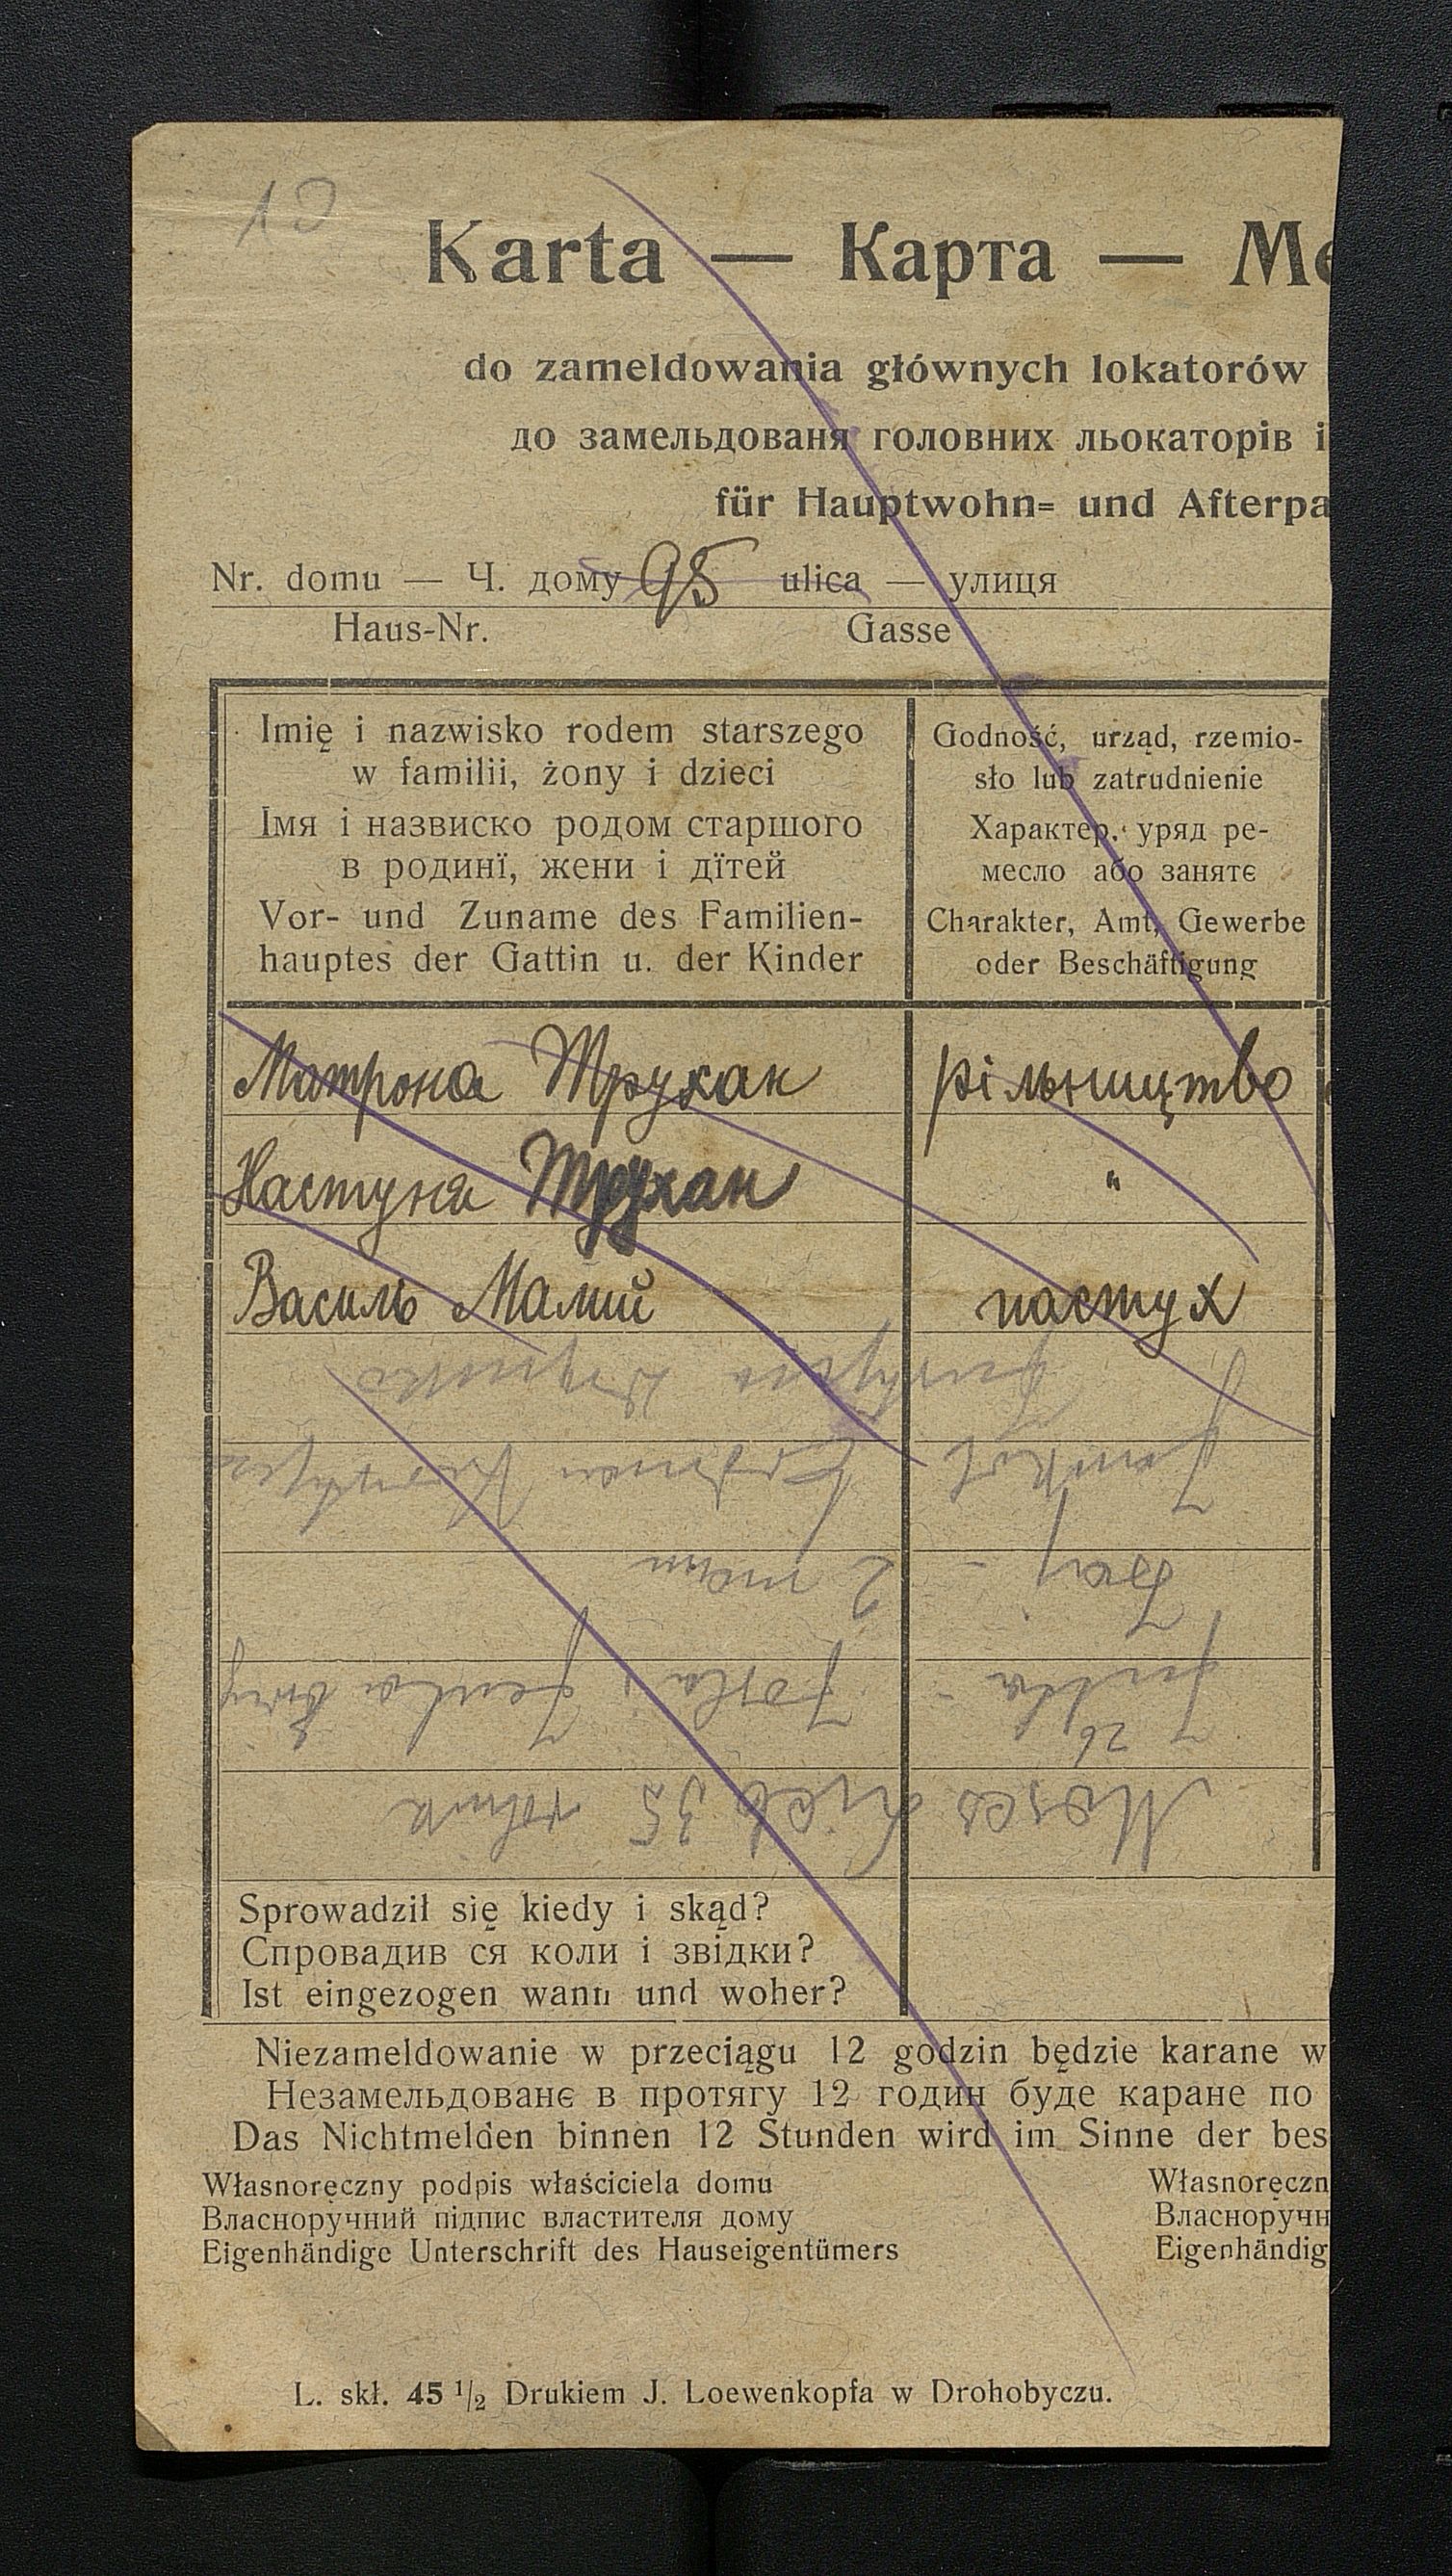 10
Karta — Карта — Me
do zameldowania głównych lokatorów
до замельдованя головних льокаторів і
für Hauptwohn= und Afterpa
Nr. domu — Ч. дому 95 ulica — улиця
Haus-Nr. Gasse
Imię i nazwisko rodem starszego
w familii, żony i dzieci
Імя і назвиско родом старшого
в родинї, жени і дїтей
Vor- und Zuname des Familien-
hauptes der Gattin u. der Kinder
Godność, urząd, rzemio-
sło lub zatrudnienie
Характер, уряд ре-
месло або занятє
Charakter, Amt, Gewerbe
oder Beschäftigung
Матрона Трухан рільництво
Настуня Трухан "
Василь Малий пастух
2
26
Moses 35
Sprowadził się kiedy i skąd?
Спровадив ся коли і звідки?
Ist eingezogen wann und woher?
Niezameldowanie w przeciągu 12 godzin będzie karane w
Незамельдованє в протягу 12 годин буде каране по
Das Nichtmelden binnen 12 Stunden wird im Sinne der bes
Własnoręczny podpis właściciela domu Własnoręczn
Власноручний підпис властителя дому Власноручн
Eigenhändige Unterschrift des Hauseigentümers Eigenhändig
L. skł. 45 1/2 Drukiem J. Loewenkopfa w Drohobyczu.